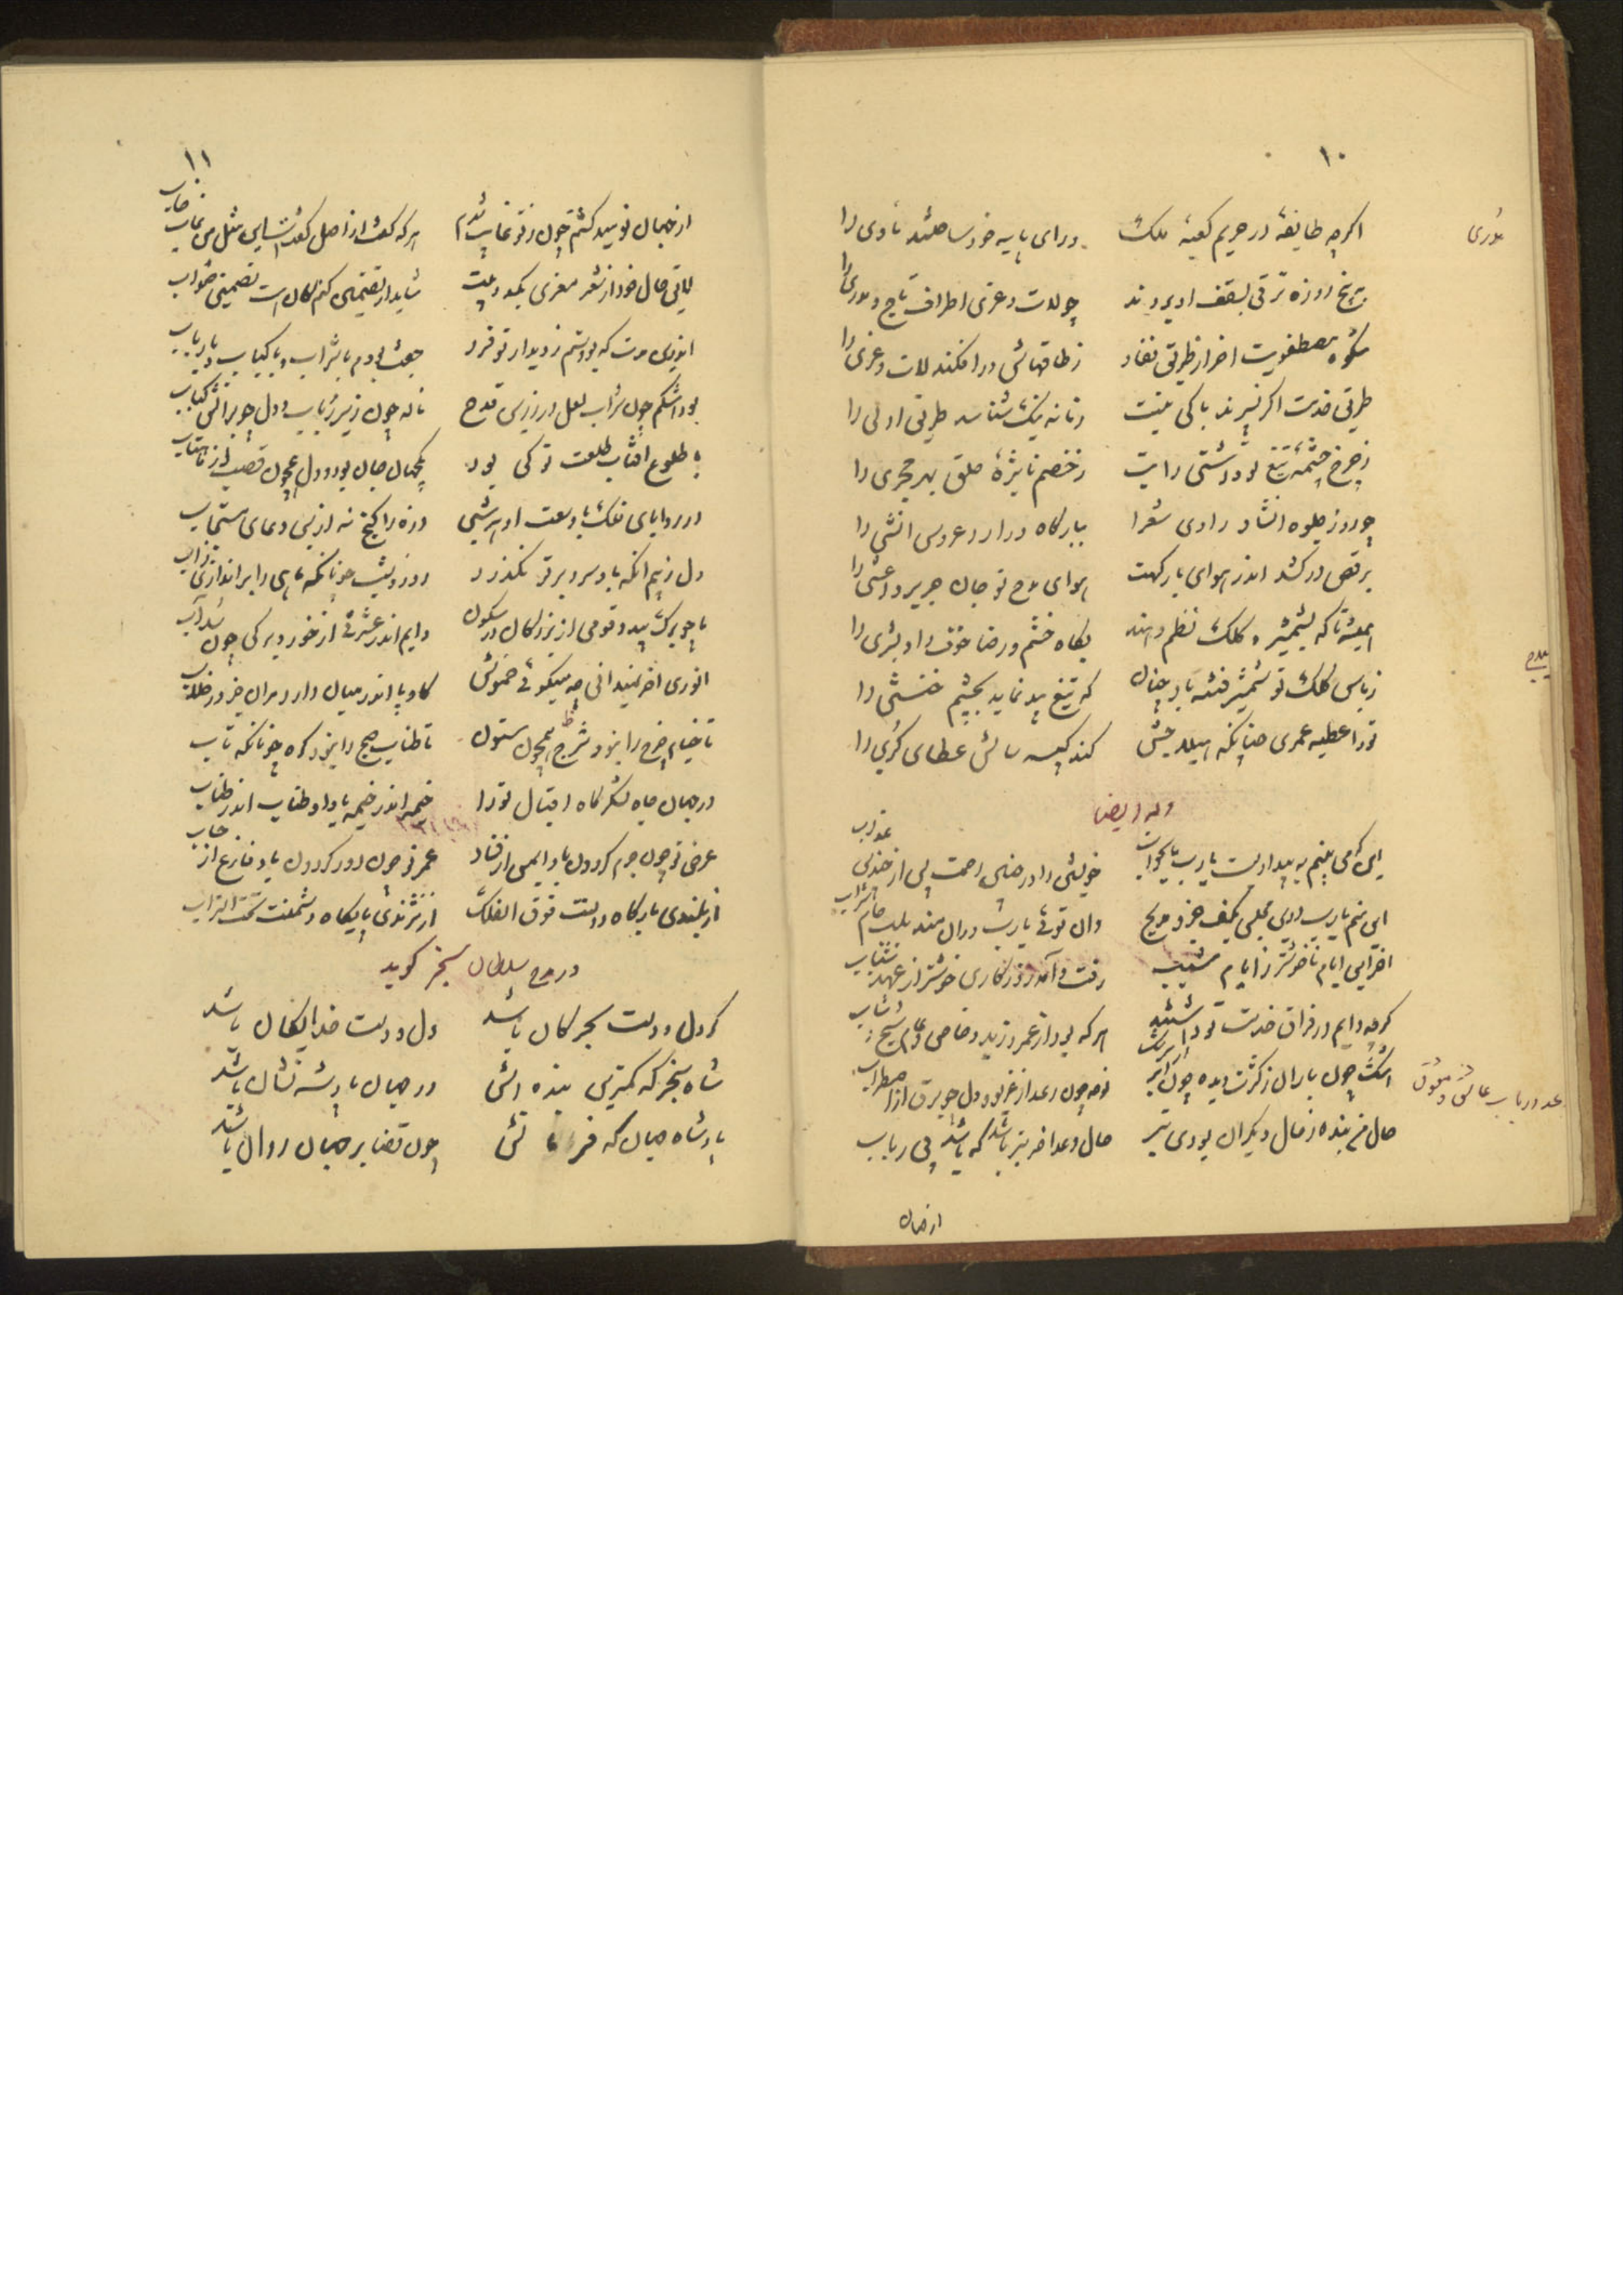 ۱۰
اکرچه طایفهٔ در حریم کعبهٔ ملک ورای پایه خود ساختند ماوی را
به پنج روزه ترقی بسقف او بردند چو لات و عزی اطراف تاج و مدری را
شکوه مصطفویت اخر از طریق نفاد ز طاقهاش در افکند لات و عزی را
طریق خدمت اکر نسپرند باکی نیست زمانه نیک شناسد طریق اولی را
ز چرخ چشمهٔ تیغ تو داشتی رایت ز خصم نایژهٔ حلق بهر مجری را
چو روز جلوه انشاد راوی شعرا ببارکاه در ارد عروس انشی را
برقص در کشد اندر هوای بارکهت هوای مدح تو جان جریر و اعشی را
همیشه تا که بشمشیر و کلک نظم دهند بکاه خشم و رضا خوف را و بشری را
ز باس کلک تو شمشیر فتنه باد چنان که تیغ بید نماید بچشم خنثی را
تو را عطیه عمری چنانکه هیلاجش کند کبیسه سالش عطای کبری را
وله ایضا
این که می بینم به بیداریست یارب یا بخواب خویشتن را در چنین راحت پس از چندین عذاب
این منم یارب درین مجلس بکف جزو مدیح وان تویی یارب دران مسند بلب جام شراب
اخر این ایام ناخوشتر ز ایام مشیب رفت و آمد روزکاری خوشتر از عهد شباب
کرچه دایم در فراق خدمت تو داشتند هر که بود از عمرو و زید و خاص و عام و شیخ و شاب
اشک چون باران ز کثرت دیده چون ابر از سرشک نوحه چون رعد از غریو و دل چو برق از اضطراب
حال من بنده ز حال دیکران بودی بتر حال وعد اخر بتر باشد که باشد بی رباب
ازجهان
۱۱
ازجهان نومید کشتم چون ز تو غایب شدم هر که کفت از اصل کفتست این مثل من غاب خاب
لایق حال خود از شعر معزی یک دو بیت شاید ار تضمین کنم کان است تضمینی صواب
اندرین مدت که بودستم ز دیدار تو فرد جفت بودم با شراب و با کباب و با رباب
بود اشکم چون شراب لعل در زرین قدح ناله چون زیر رباب و دل چو بر اتش کباب
با طلوع افتاب طلعت تو کی بود یکجهان جان بود و دل همچون قصب از ماهتاب
در زوایای فلک با وسعت او هر شبی ذره را کنج نه از بس دعای مستجاب
دل ز بیم انکه باد سرد بر تو نکذرد روز و شب چونانکه ماهی را براندازی ز اب
با چو برک بید و قومی از بزرکان در سکون دایم اندر عشرتی از خورد بر کی چون سداب
انوری اخر نمیدانی چه میکویی خموش کاو پا اندر میان دارد مران خر در خلاب
تا خیام چرخ را نبود شرج همچون ستون تا طناب صبح را نبود کره چونانکه تاب
در جهان جاه لشکرکاه اقبال تو را خیمه اندر خیمه بادا و طناب اندر طناب
عرض تو چون جرم کردون باد ایمن از فساد عمر تو چون دور کردون باد فارغ از حساب
از بلندی بارکاه دولتت فوق الفلک از نژندی پایکاه دشمنت تحت التراب
در مدح سلطان سنجر کوید
کر دل و دست بحر و کان باشد دل و دست خدایکان باشد
شاه سنجر که کمترین بنده اش در جهان پادشه نشان باشد
پادشاه جهان که فرمانش چون قضا بر جهان روان باشد